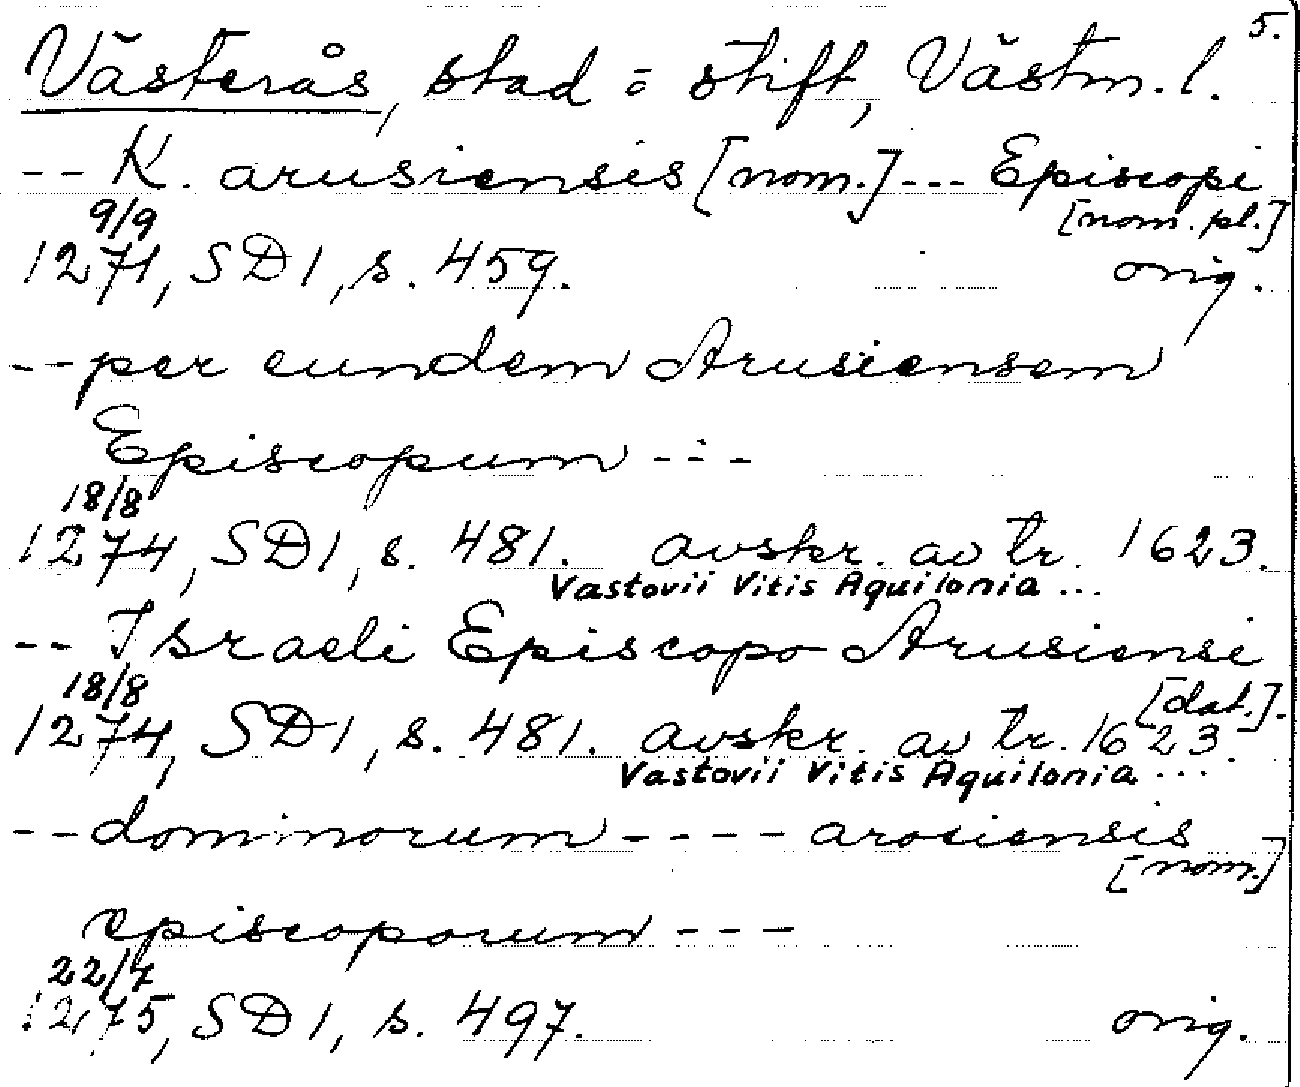 5.
Västerås, stad o stift, Västm. l.
-- K. arusiensis [nom.] --- Episcopi
9/9 [nom. pl.]
1271, SD 1, s. 459. orig.
-- per eundem Arusiensem
Episcopum ---
18/8
1274, SD 1, s. 481. avskr. av tr. 1623.
Vastovii Vitis Aquilonia ...
-- Israeli Episcopo Arusiensi
18/8 [dat.].
1274, SD 1, s. 481. avskr. av tr. 1623
Vastovii Vitis Aquilonia ...
-- dominorum ---- arosiensis
[nom.]
episcoporum ---
22/7
1275, SD 1, s. 497. orig.